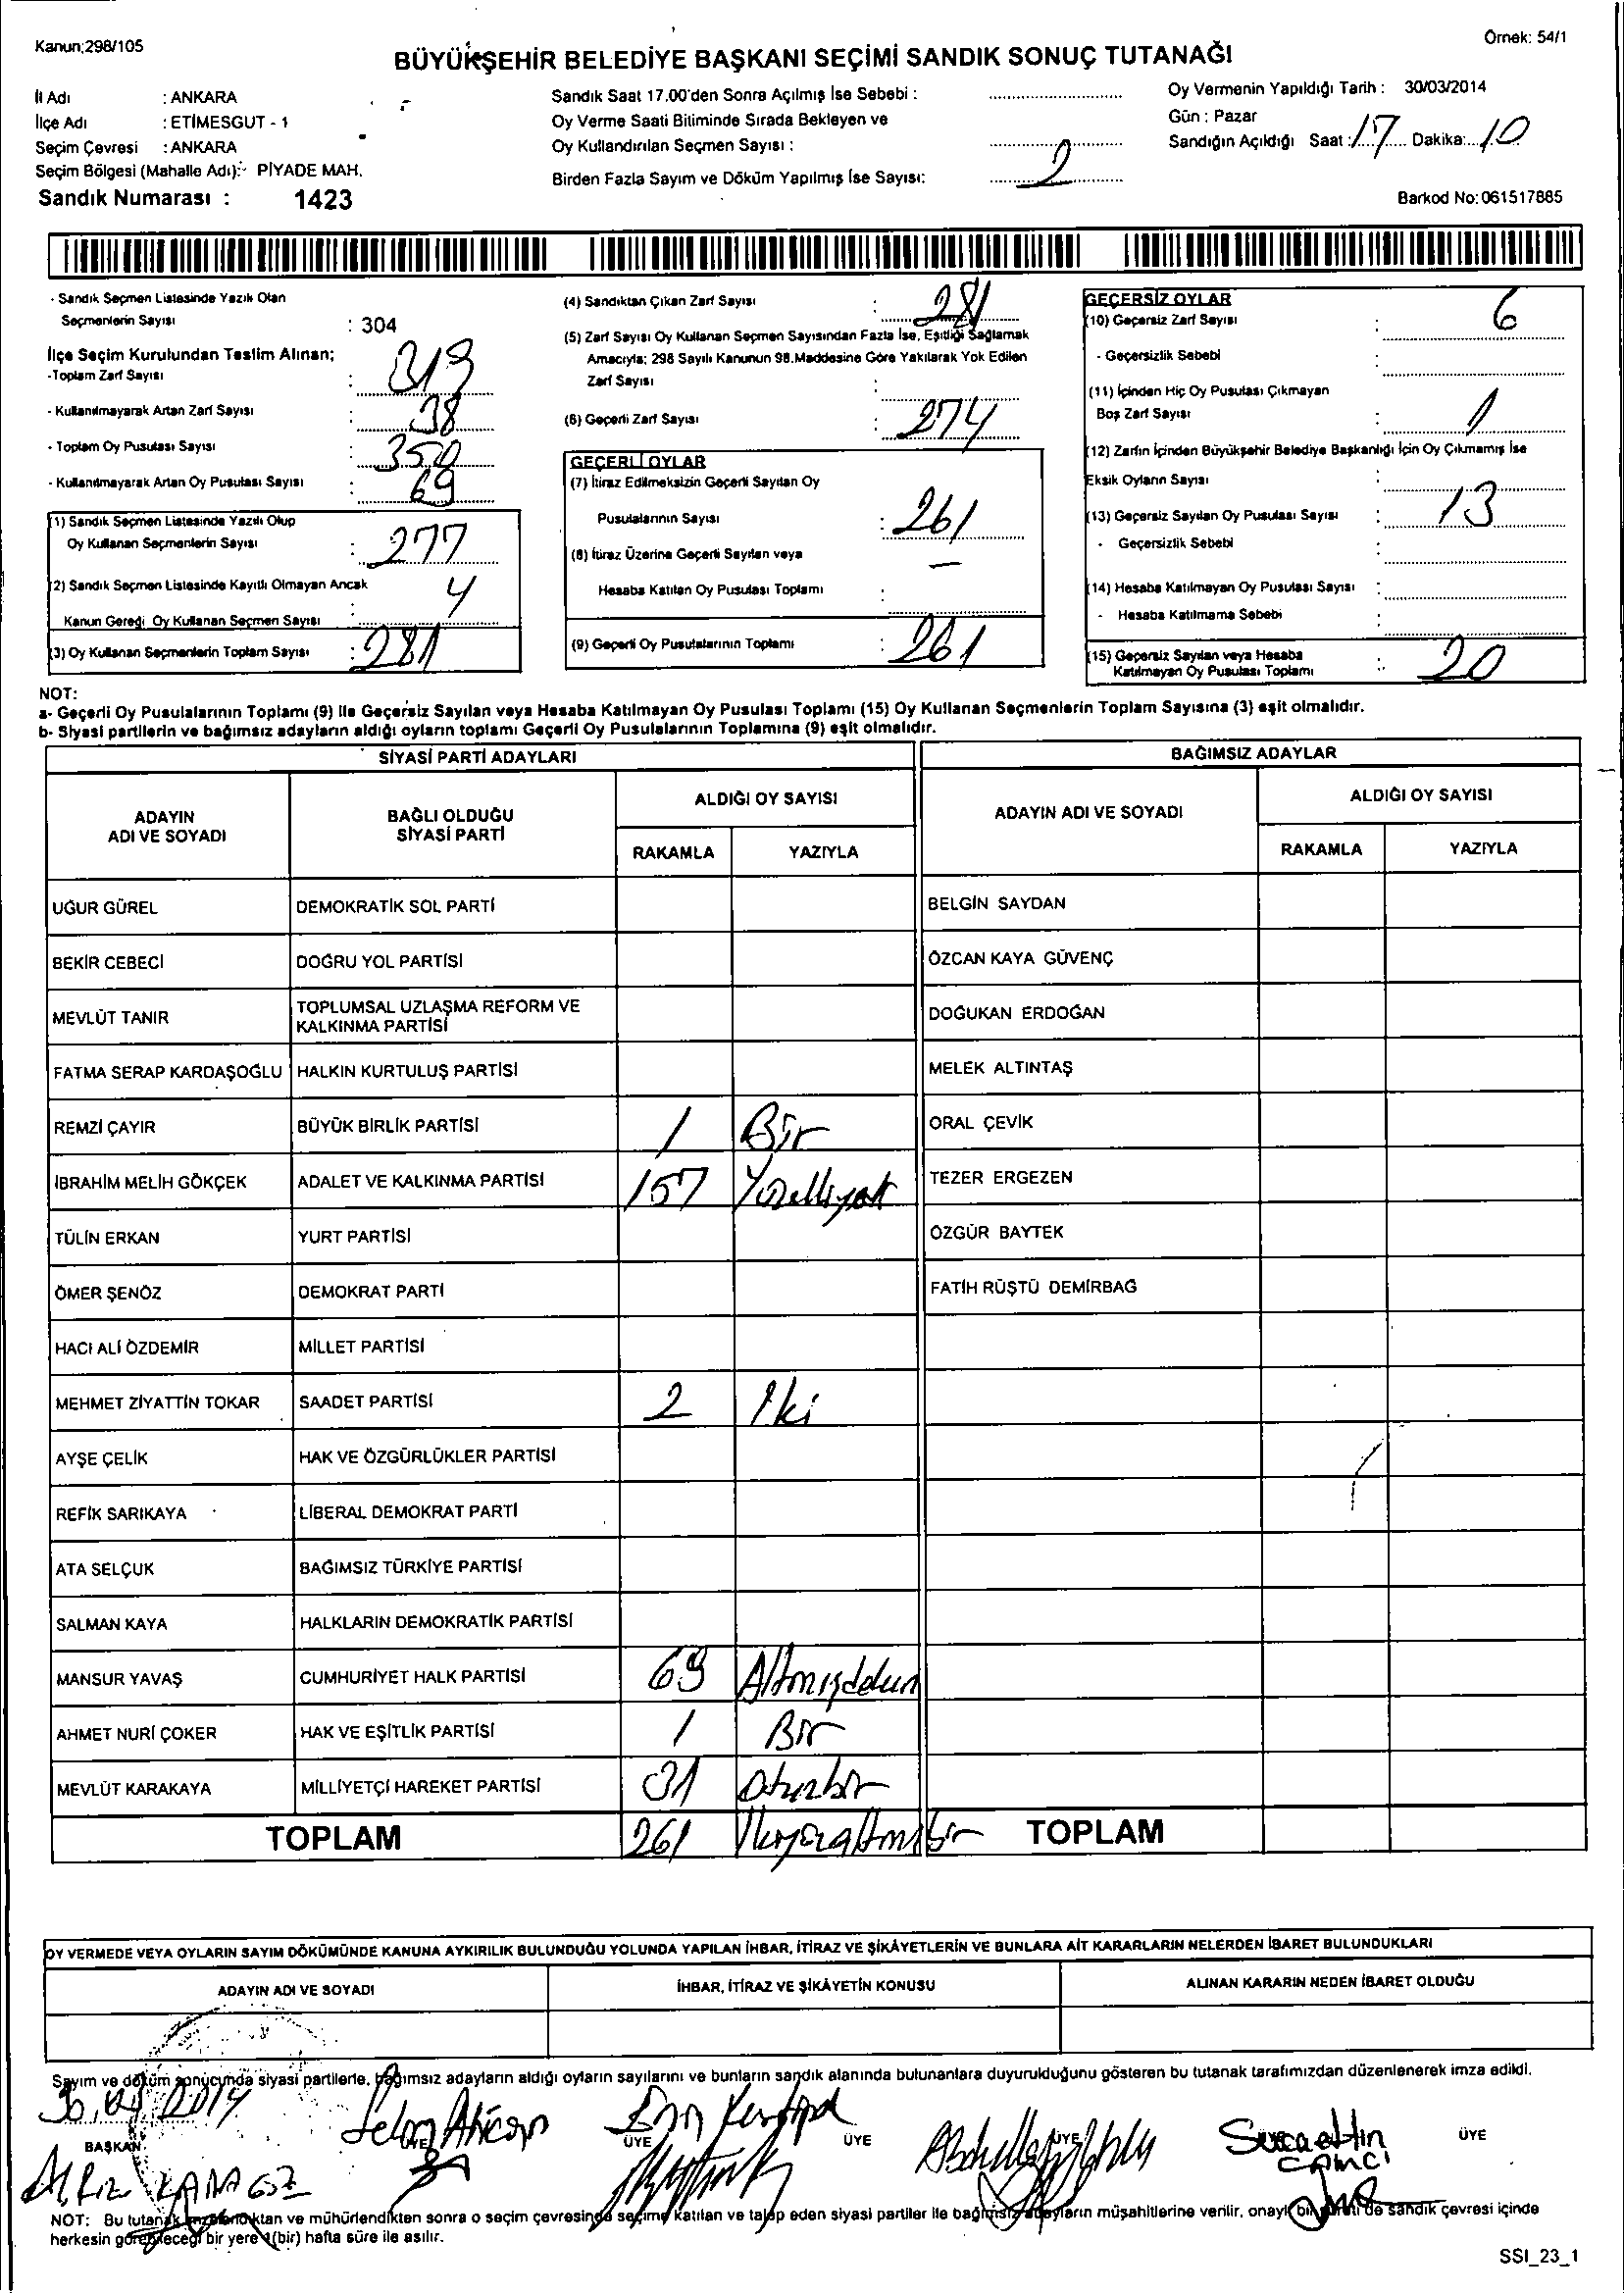 Kanun;298/105
Örnek: 54/1
BÜYÜKŞEHİR BELEDİYE BAŞKANI SEÇİMİ SANDIK SONUÇ TUTANAĞI
İl Adı : ANKARA
İlçe Adı : ETİMESGUT - 1
Seçim Çevresi : ANKARA
Seçim Bölgesi (Mahalle Adı): PİYADE MAH.
Sandık Numarası : 1423
Sandık Saat 17.00'den Sonra Açılmış İse Sebebi :
Oy Verme Saati Bitiminde Sırada Bekleyen ve
Oy Kullandırılan Seçmen Sayısı :
Birden Fazla Sayım ve Döküm Yapılmış İse Sayısı: 2
Oy Vermenin Yapıldığı Tarih : 30/03/2014
Gün : Pazar
Sandığın Açıldığı Saat : 17 Dakika: 10
Barkod No: 061517885
- Sandık Seçmen Listesinde Yazılı Olan
Seçmenlerin Sayısı : 304
İlçe Seçim Kurulundan Teslim Alınan;
-Toplam Zarf Sayısı : 319
- Kullanılmayarak Artan Zarf Sayısı : 38
- Toplam Oy Pusulası Sayısı : 350
- Kullanılmayarak Artan Oy Pusulası Sayısı : 69
(1) Sandık Seçmen Listesinde Yazılı Olup
Oy Kullanan Seçmenlerin Sayısı : 277
(2) Sandık Seçmen Listesinde Kayıtlı Olmayan Ancak
Kanun Gereği Oy Kullanan Seçmen Sayısı : 4
(3) Oy Kullanan Seçmenlerin Toplam Sayısı : 281
(4) Sandıktan Çıkan Zarf Sayısı : 281
(5) Zarf Sayısı Oy Kullanan Seçmen Sayısından Fazla İse, Eşitliği Sağlamak
Amacıyla; 298 Sayılı Kanunun 98.Maddesine Göre Yakılarak Yok Edilen
Zarf Sayısı :
(6) Geçerli Zarf Sayısı : 274
GEÇERLİ OYLAR
(7) İtiraz Edilmeksizin Geçerli Sayılan Oy
Pusulalarının Sayısı : 261
(8) İtiraz Üzerine Geçerli Sayılan veya
Hesaba Katılan Oy Pusulası Toplamı : -
(9) Geçerli Oy Pusulalarının Toplamı : 261
GEÇERSİZ OYLAR
(10) Geçersiz Zarf Sayısı : 6
- Geçersizlik Sebebi :
(11) İçinden Hiç Oy Pusulası Çıkmayan
Boş Zarf Sayısı : 1
(12) Zarfın İçinden Büyükşehir Belediye Başkanlığı İçin Oy Çıkmamış İse
Eksik Oyların Sayısı :
(13) Geçersiz Sayılan Oy Pusulası Sayısı : 13
- Geçersizlik Sebebi :
(14) Hesaba Katılmayan Oy Pusulası Sayısı :
- Hesaba Katılmama Sebebi :
(15) Geçersiz Sayılan veya Hesaba
Katılmayan Oy Pusulası Toplamı : 20
NOT:
a- Geçerli Oy Pusulalarının Toplamı (9) ile Geçersiz Sayılan veya Hesaba Katılmayan Oy Pusulası Toplamı (15) Oy Kullanan Seçmenlerin Toplam Sayısına (3) eşit olmalıdır.
b- Siyasi partilerin ve bağımsız adayların aldığı oyların toplamı Geçerli Oy Pusulalarının Toplamına (9) eşit olmalıdır.
SİYASİ PARTİ ADAYLARI
BAĞIMSIZ ADAYLAR
ADAYIN ADI VE SOYADI
BAĞLI OLDUĞU SİYASİ PARTİ
ALDIĞI OY SAYISI
RAKAMLA YAZIYLA
ADAYIN ADI VE SOYADI
ALDIĞI OY SAYISI
RAKAMLA YAZIYLA
UĞUR GÜREL DEMOKRATİK SOL PARTİ BELGİN SAYDAN
BEKİR CEBECİ DOĞRU YOL PARTİSİ ÖZCAN KAYA GÜVENÇ
MEVLÜT TANIR TOPLUMSAL UZLAŞMA REFORM VE KALKINMA PARTİSİ DOĞUKAN ERDOĞAN
FATMA SERAP KARDAŞOĞLU HALKIN KURTULUŞ PARTİSİ MELEK ALTINTAŞ
REMZİ ÇAYIR BÜYÜK BİRLİK PARTİSİ 1 Bir ORAL ÇEVİK
İBRAHİM MELİH GÖKÇEK ADALET VE KALKINMA PARTİSİ 157 Yüzelliyedi TEZER ERGEZEN
TÜLİN ERKAN YURT PARTİSİ ÖZGÜR BAYTEK
ÖMER ŞENÖZ DEMOKRAT PARTİ FATİH RÜŞTÜ DEMİRBAĞ
HACI ALİ ÖZDEMİR MİLLET PARTİSİ
MEHMET ZİYATTİN TOKAR SAADET PARTİSİ 2 İki
AYŞE ÇELİK HAK VE ÖZGÜRLÜKLER PARTİSİ
REFİK SARIKAYA LİBERAL DEMOKRAT PARTİ
ATA SELÇUK BAĞIMSIZ TÜRKİYE PARTİSİ
SALMAN KAYA HALKLARIN DEMOKRATİK PARTİSİ
MANSUR YAVAŞ CUMHURİYET HALK PARTİSİ 69
AHMET NURİ ÇOKER HAK VE EŞİTLİK PARTİSİ 1 Bir
MEVLÜT KARAKAYA MİLLİYETÇİ HAREKET PARTİSİ 31 Otuzbir
TOPLAM 261 TOPLAM
OY VERMEDE VEYA OYLARIN SAYIM DÖKÜMÜNDE KANUNA AYKIRILIK BULUNDUĞU YOLUNDA YAPILAN İHBAR, İTİRAZ VE ŞİKÂYETLERİN VE BUNLARA AİT KARARLARIN NELERDEN İBARET BULUNDUKLARI
ADAYIN ADI VE SOYADI İHBAR, İTİRAZ VE ŞİKÂYETİN KONUSU ALINAN KARARIN NEDEN İBARET OLDUĞU
Sayım ve döküm sonucunda siyasi partilerle, bağımsız adayların aldığı oyların sayılarını ve bunların sandık alanında bulunanlara duyurulduğunu gösteren bu tutanak tarafımızdan düzenlenerek imza edildi.
30.03.2014
BAŞKAN ÜYE ÜYE ÜYE ÜYE ÜYE
NOT: Bu tutanak imzalandıktan ve mühürlendikten sonra o seçim çevresinde seçime katılan ve talep eden siyasi partiler ile bağımsız adayların müşahitlerine verilir, onaylı bir sureti de sandık çevresi içinde
herkesin görebileceği bir yere 1(bir) hafta süre ile asılır.
SSI_23_1